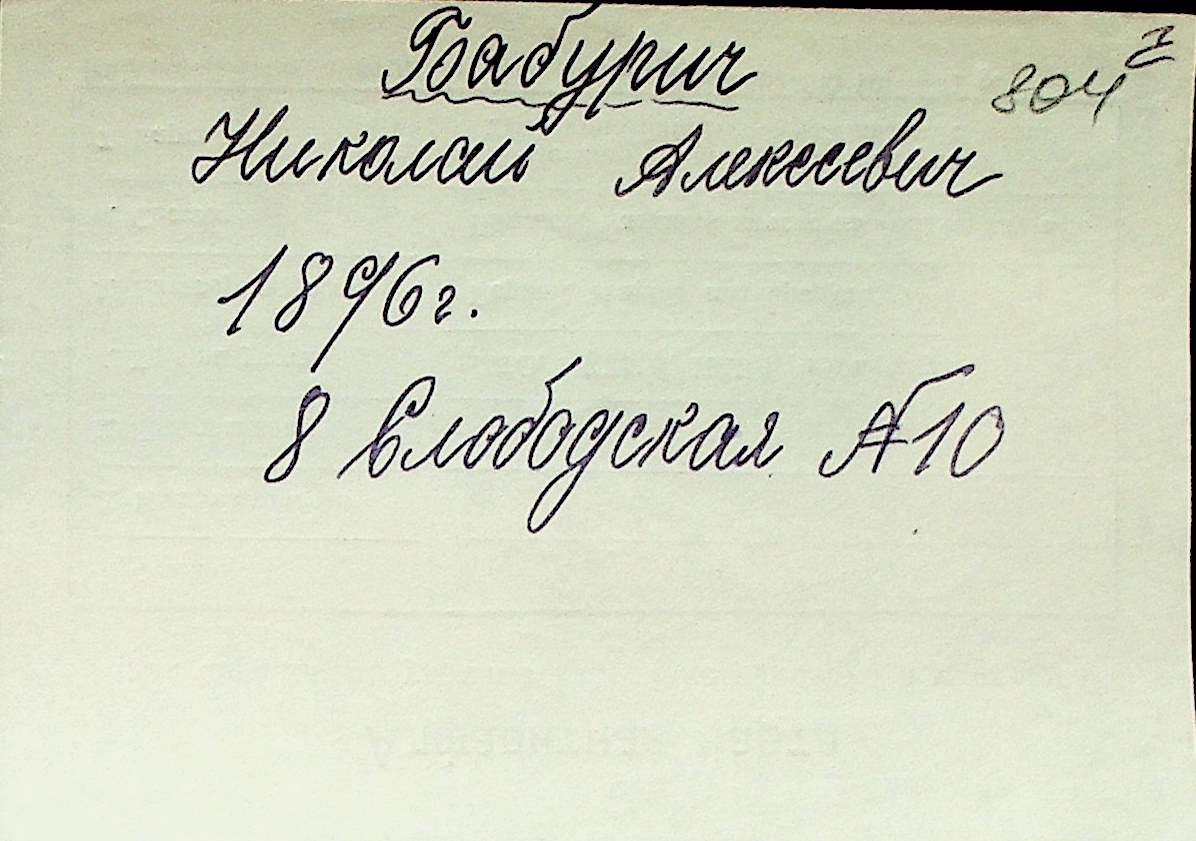 Бабурич
804 I
Николай Алексеевич
1896 г.
8 Слободская № 10